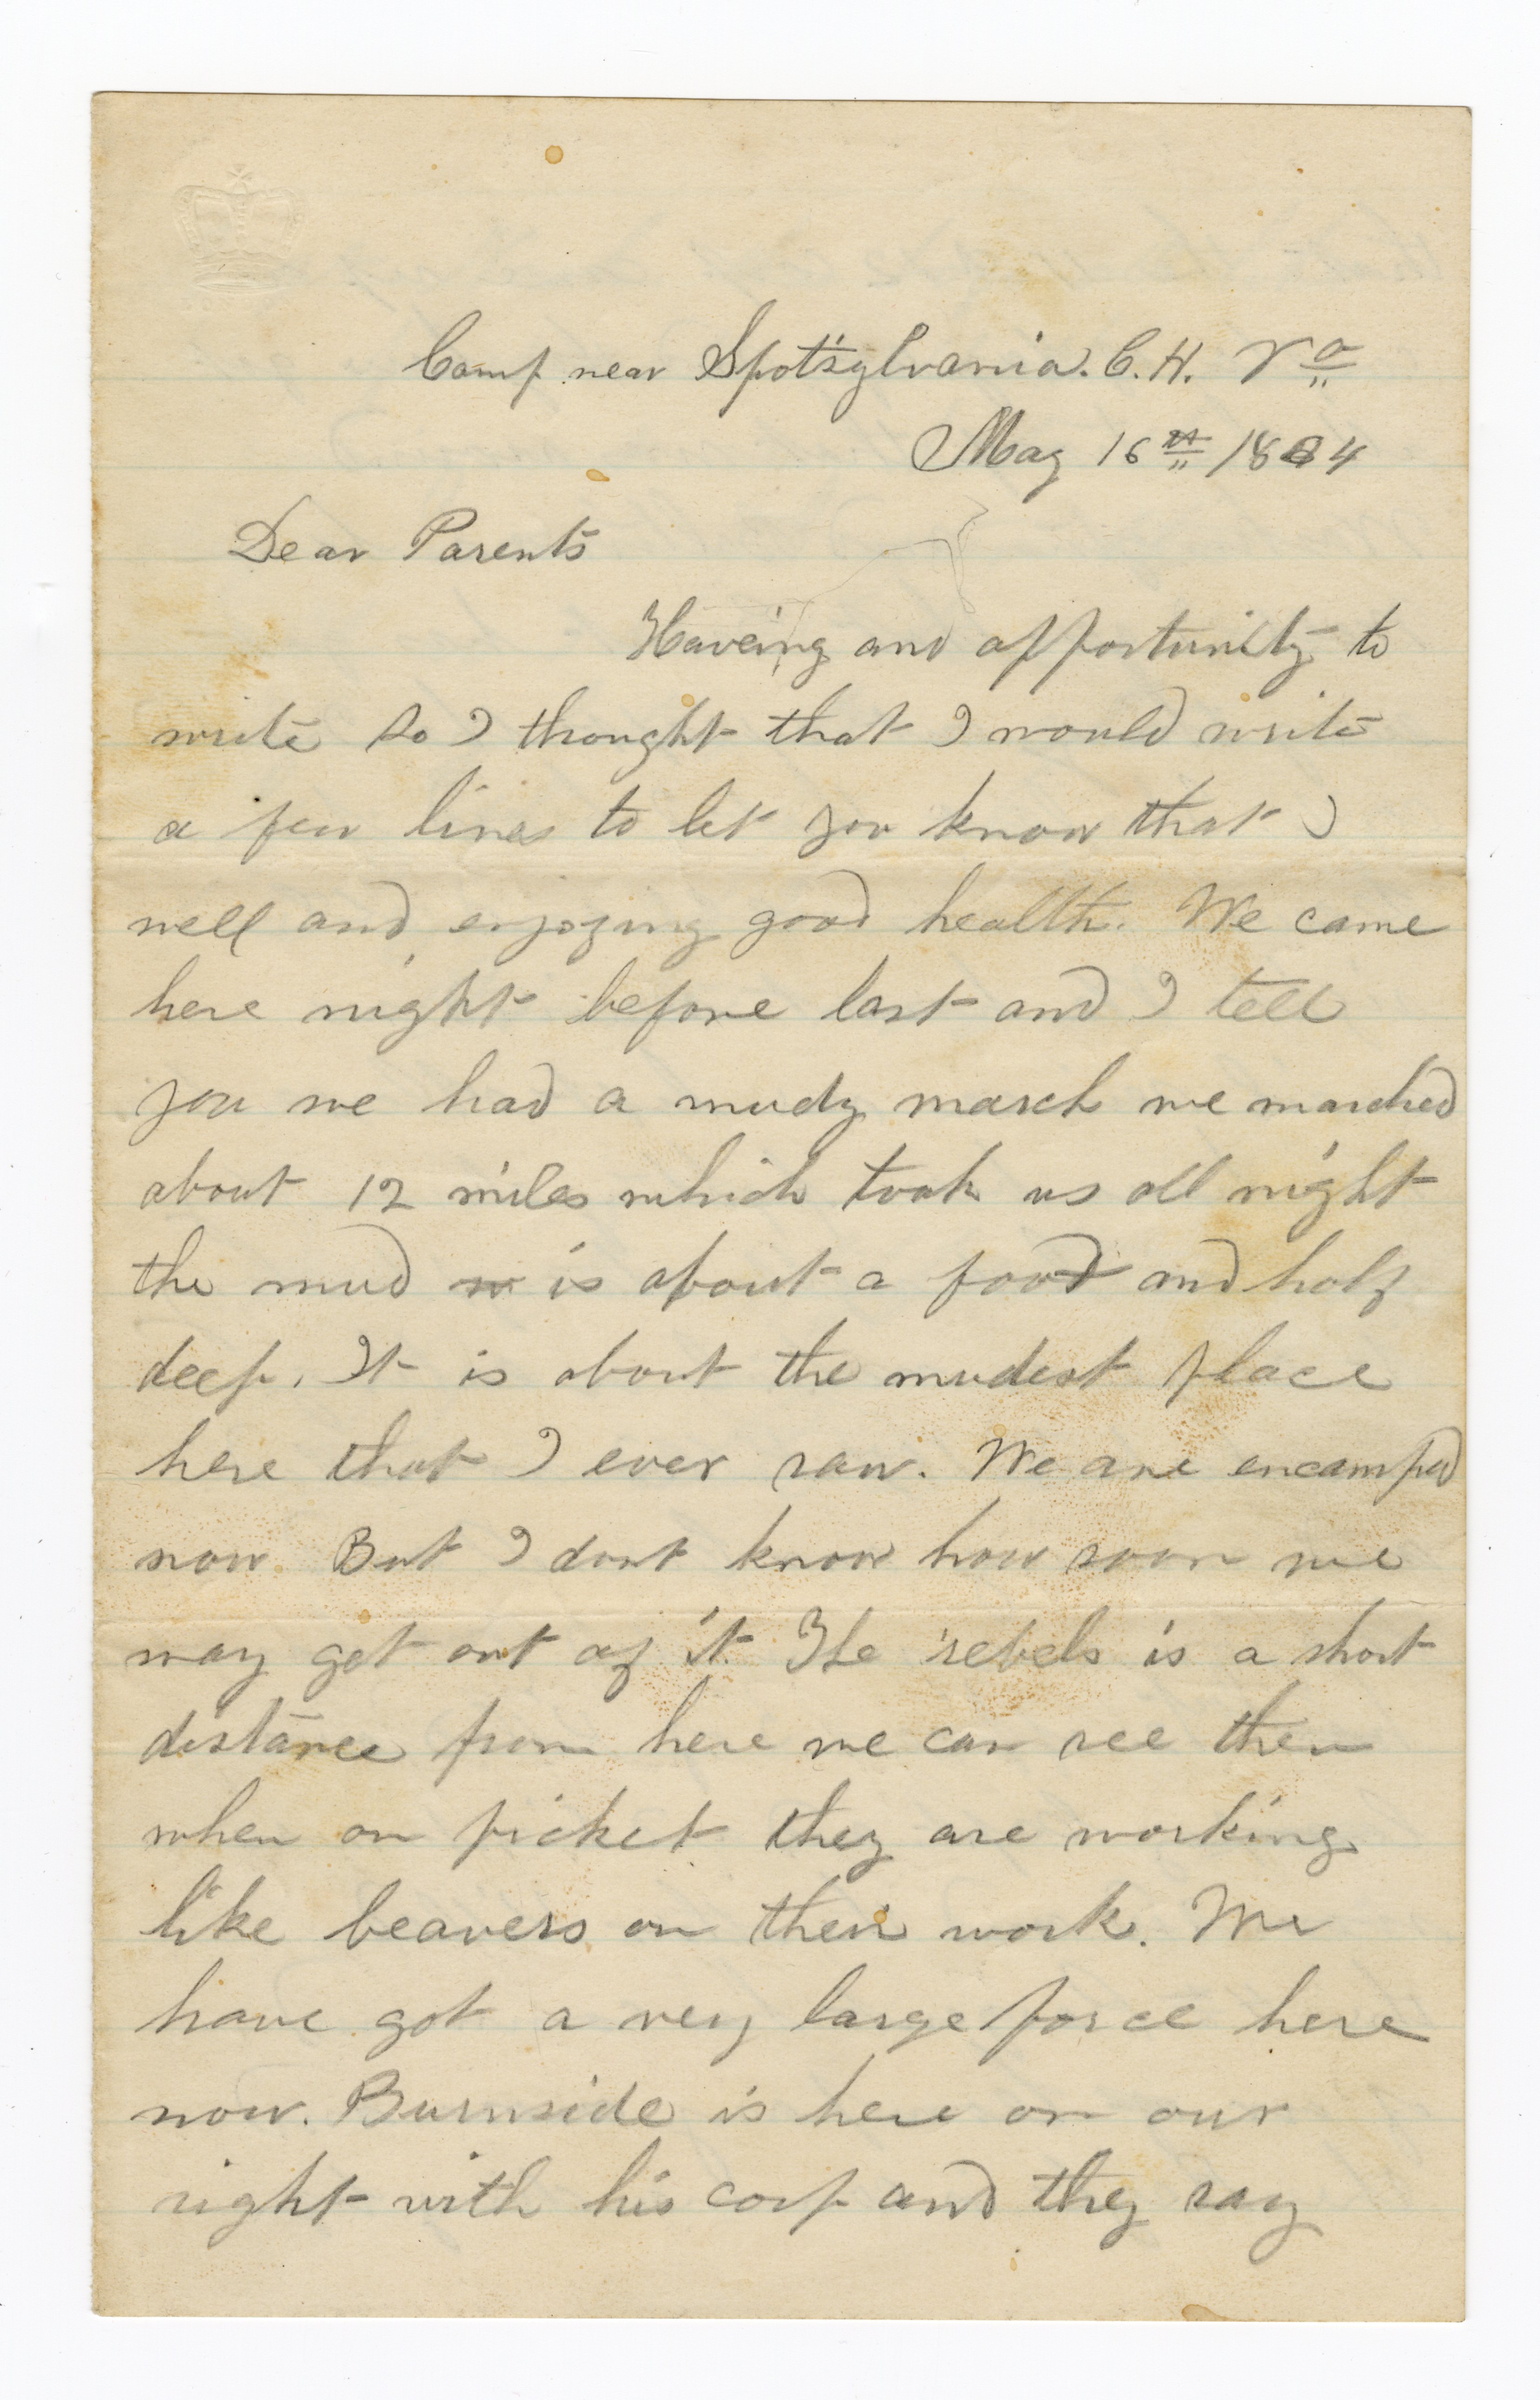 Camp near Spot'sylvania. C. H. Va
May 16th 1864
Dear Parents
Haveing and opportunity to
write so I thought that I would write
a few lines to let you know that I
well and enjoying good health. We came
here night before last and I tell
you we had a mudy march we marched
about 12 miles which took us all night
the mud is about a food and half
deep. It is about the mudest place
here that I ever saw. We are encamped
now. But I dont know how soon we
may get out of it. The rebels is a short
distance from here we can see them
when on picket they are working
like beavers on their work. We
have got a very large force here
now. Burnside is here on our
right with his corp and they say